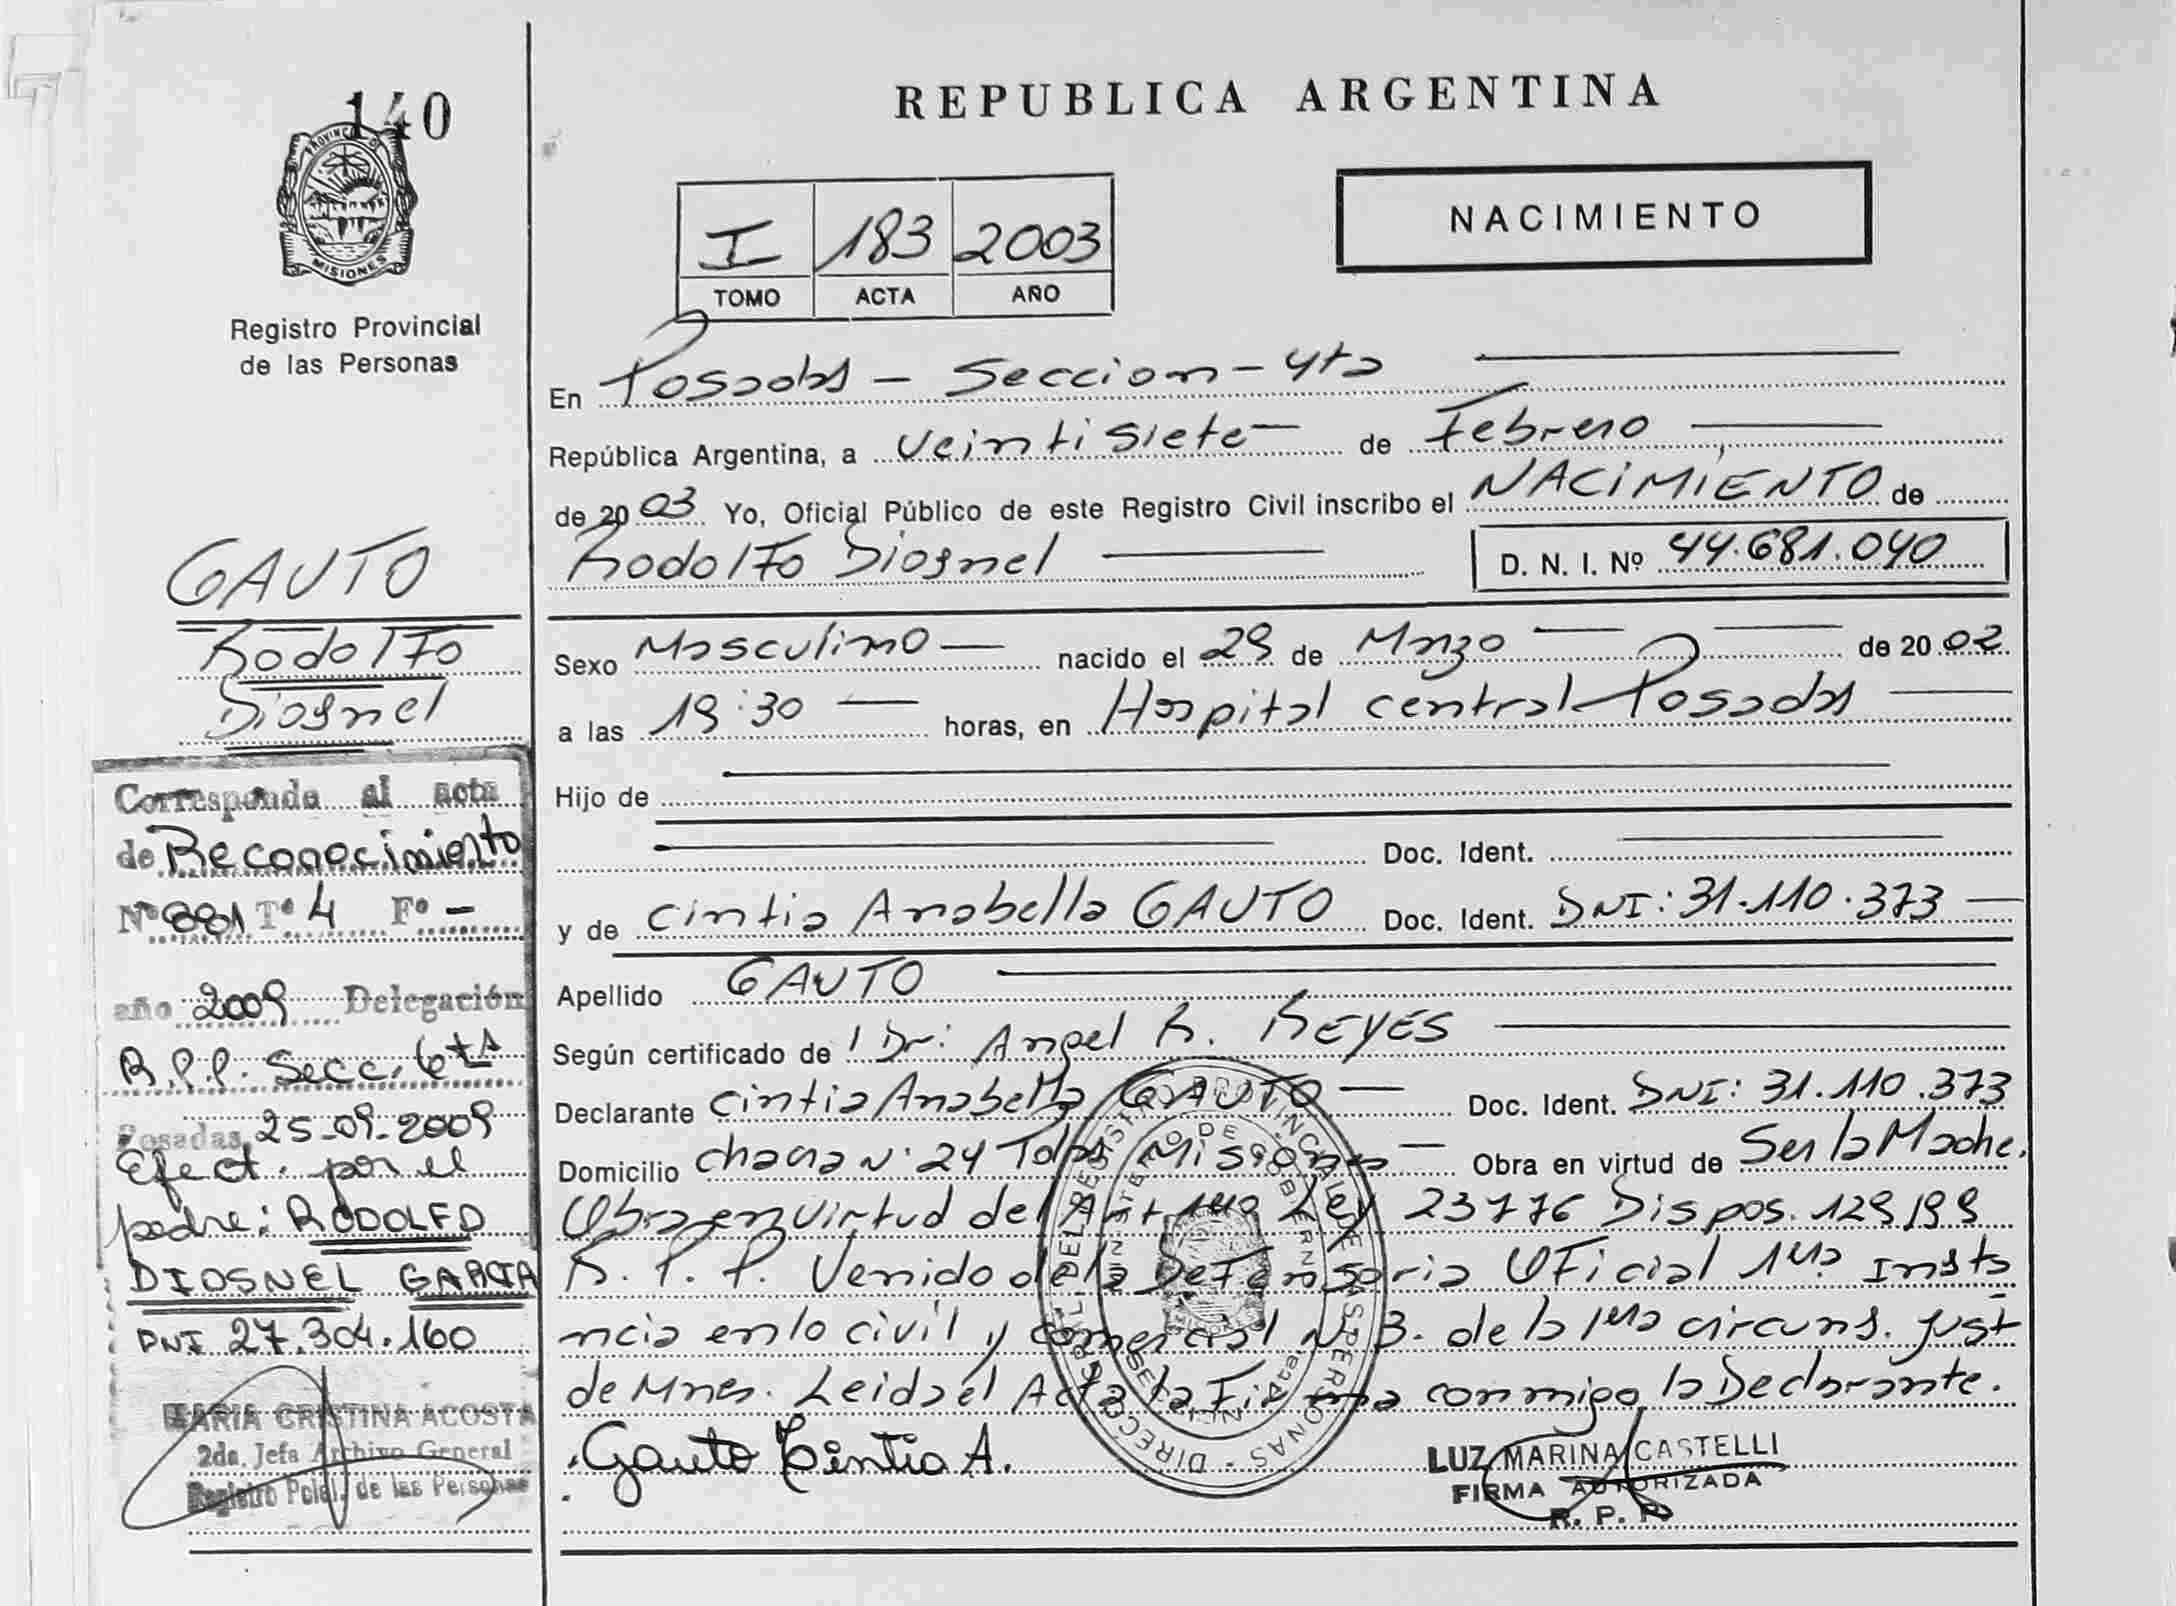 140
PROVINCIA DE
MISIONES
Registro Provincial
de las Personas
GAUTO
Rodolfo
Diosnel
Corresponde al acta
de Reconocimiento
Nº 881 Tº 4 Fº -
año 2009 Delegación
R.P.P. Secc. 6ta
Posadas, 25-09-2009
Efect. por el
padre: RODOLFO
DIOSNEL GARCIA
DNI 27.304.160
MARIA CRISTINA ACOSTA
2da. Jefa Archivo General
Registro Pcial. de las Personas
REPUBLICA ARGENTINA
I 183 2003
TOMO ACTA AÑO
NACIMIENTO
En Posadas - Seccion - 4ta
República Argentina, a veintisiete de Febrero
de 2003 Yo, Oficial Público de este Registro Civil inscribo el NACIMIENTO de
Rodolfo Diosnel D. N. I. Nº 44.681.040
Sexo Masculino nacido el 29 de Marzo de 2002
a las 19:30 horas, en Hospital central Posadas
Hijo de
Doc. Ident.
y de Cintia Anabella GAUTO Doc. Ident. DNI: 31.110.373
Apellido GAUTO
Según certificado de Dr: Angel R. REYES
Declarante Cintia Anabella GAUTO Doc. Ident. DNI: 31.110.373
Domicilio chacra Nº 24 Misiones Obra en virtud de Ser la Madre.
Obra en virtud del Art 1ro Ley 23776 Dispos. 129/99
R. P. P. Venido de la Defensoria Oficial 1ra Insta
ncia en lo civil y comercial Nº 3. de la 1ra circuns. Just
de Mnes. Leida el Acta la Firma conmigo la Declarante.
Gauto Cintia A.
LUZ MARINA CASTELLI
FIRMA AUTORIZADA
R. P. P.
DIRECC. GRAL. DEL REGISTRO PROVINCIAL DE LAS PERSONAS
MINISTERIO DE GOBIERNO